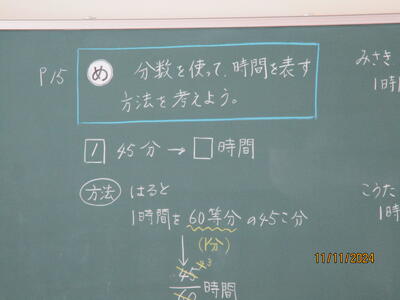 P15
め 分数を使って、時間を表す
方法を考えよう。
1 45分 → □ 時間
方法 はると
1時間を60等分の45こ分
(1分)
45 3
60
時間
みさき
1時
こうた
1時
11/11/2024